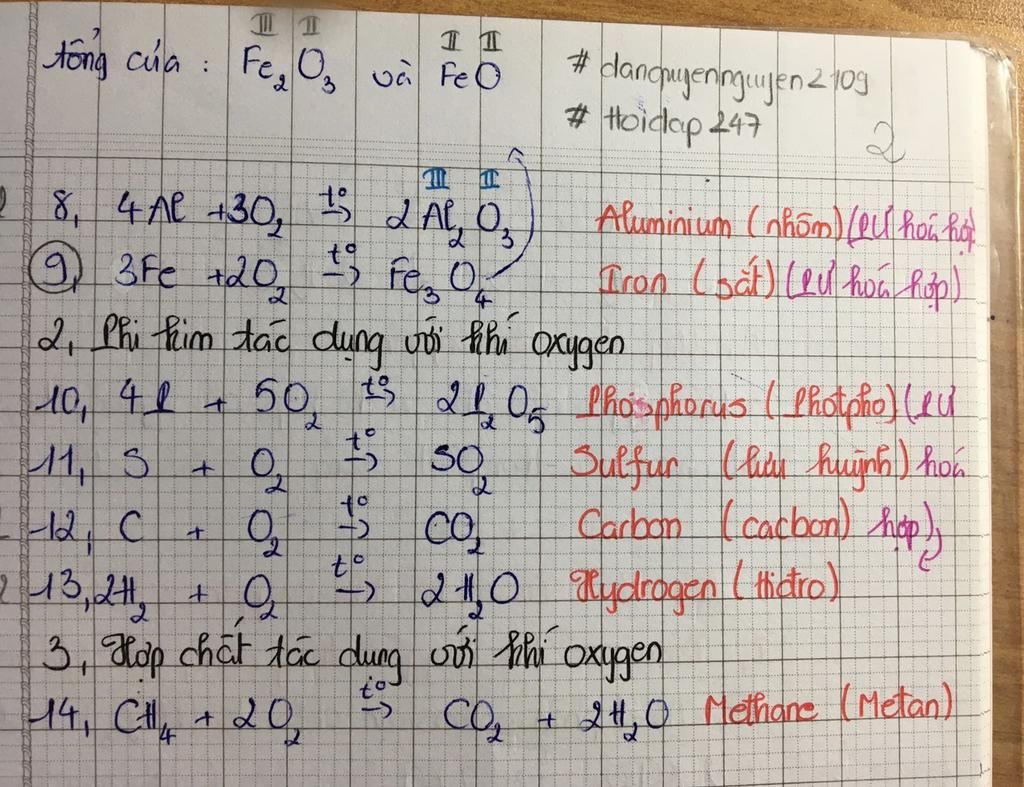 III II
II II
tổng của : Fe₂O₃ và FeO
# danquyennguyen2109
# Hoidap247
2
III II
8, 4Al + 3O₂ t°→ 2Al₂O₃ Aluminium (nhôm) (PƯ hoá hợp
9, 3Fe + 2O₂ t°→ Fe₃O₄ Iron (sắt) (PƯ hoá hợp)
2, Phi kim tác dụng với khí oxygen
10, 4P + 5O₂ t°→ 2P₂O₅ Phosphorus (Photpho) (PƯ
11, S + O₂ t°→ SO₂ Sulfur (lưu huỳnh) hoá
12, C + O₂ t°→ CO₂ Carbon (cacbon) hợp)
13, 2H₂ + O₂ t°→ 2H₂O Hydrogen (Hidtro)
3, Hợp chất tác dụng với khí oxygen
14, CH₄ + 2O₂ t°→ CO₂ + 2H₂O Methane (Metan)